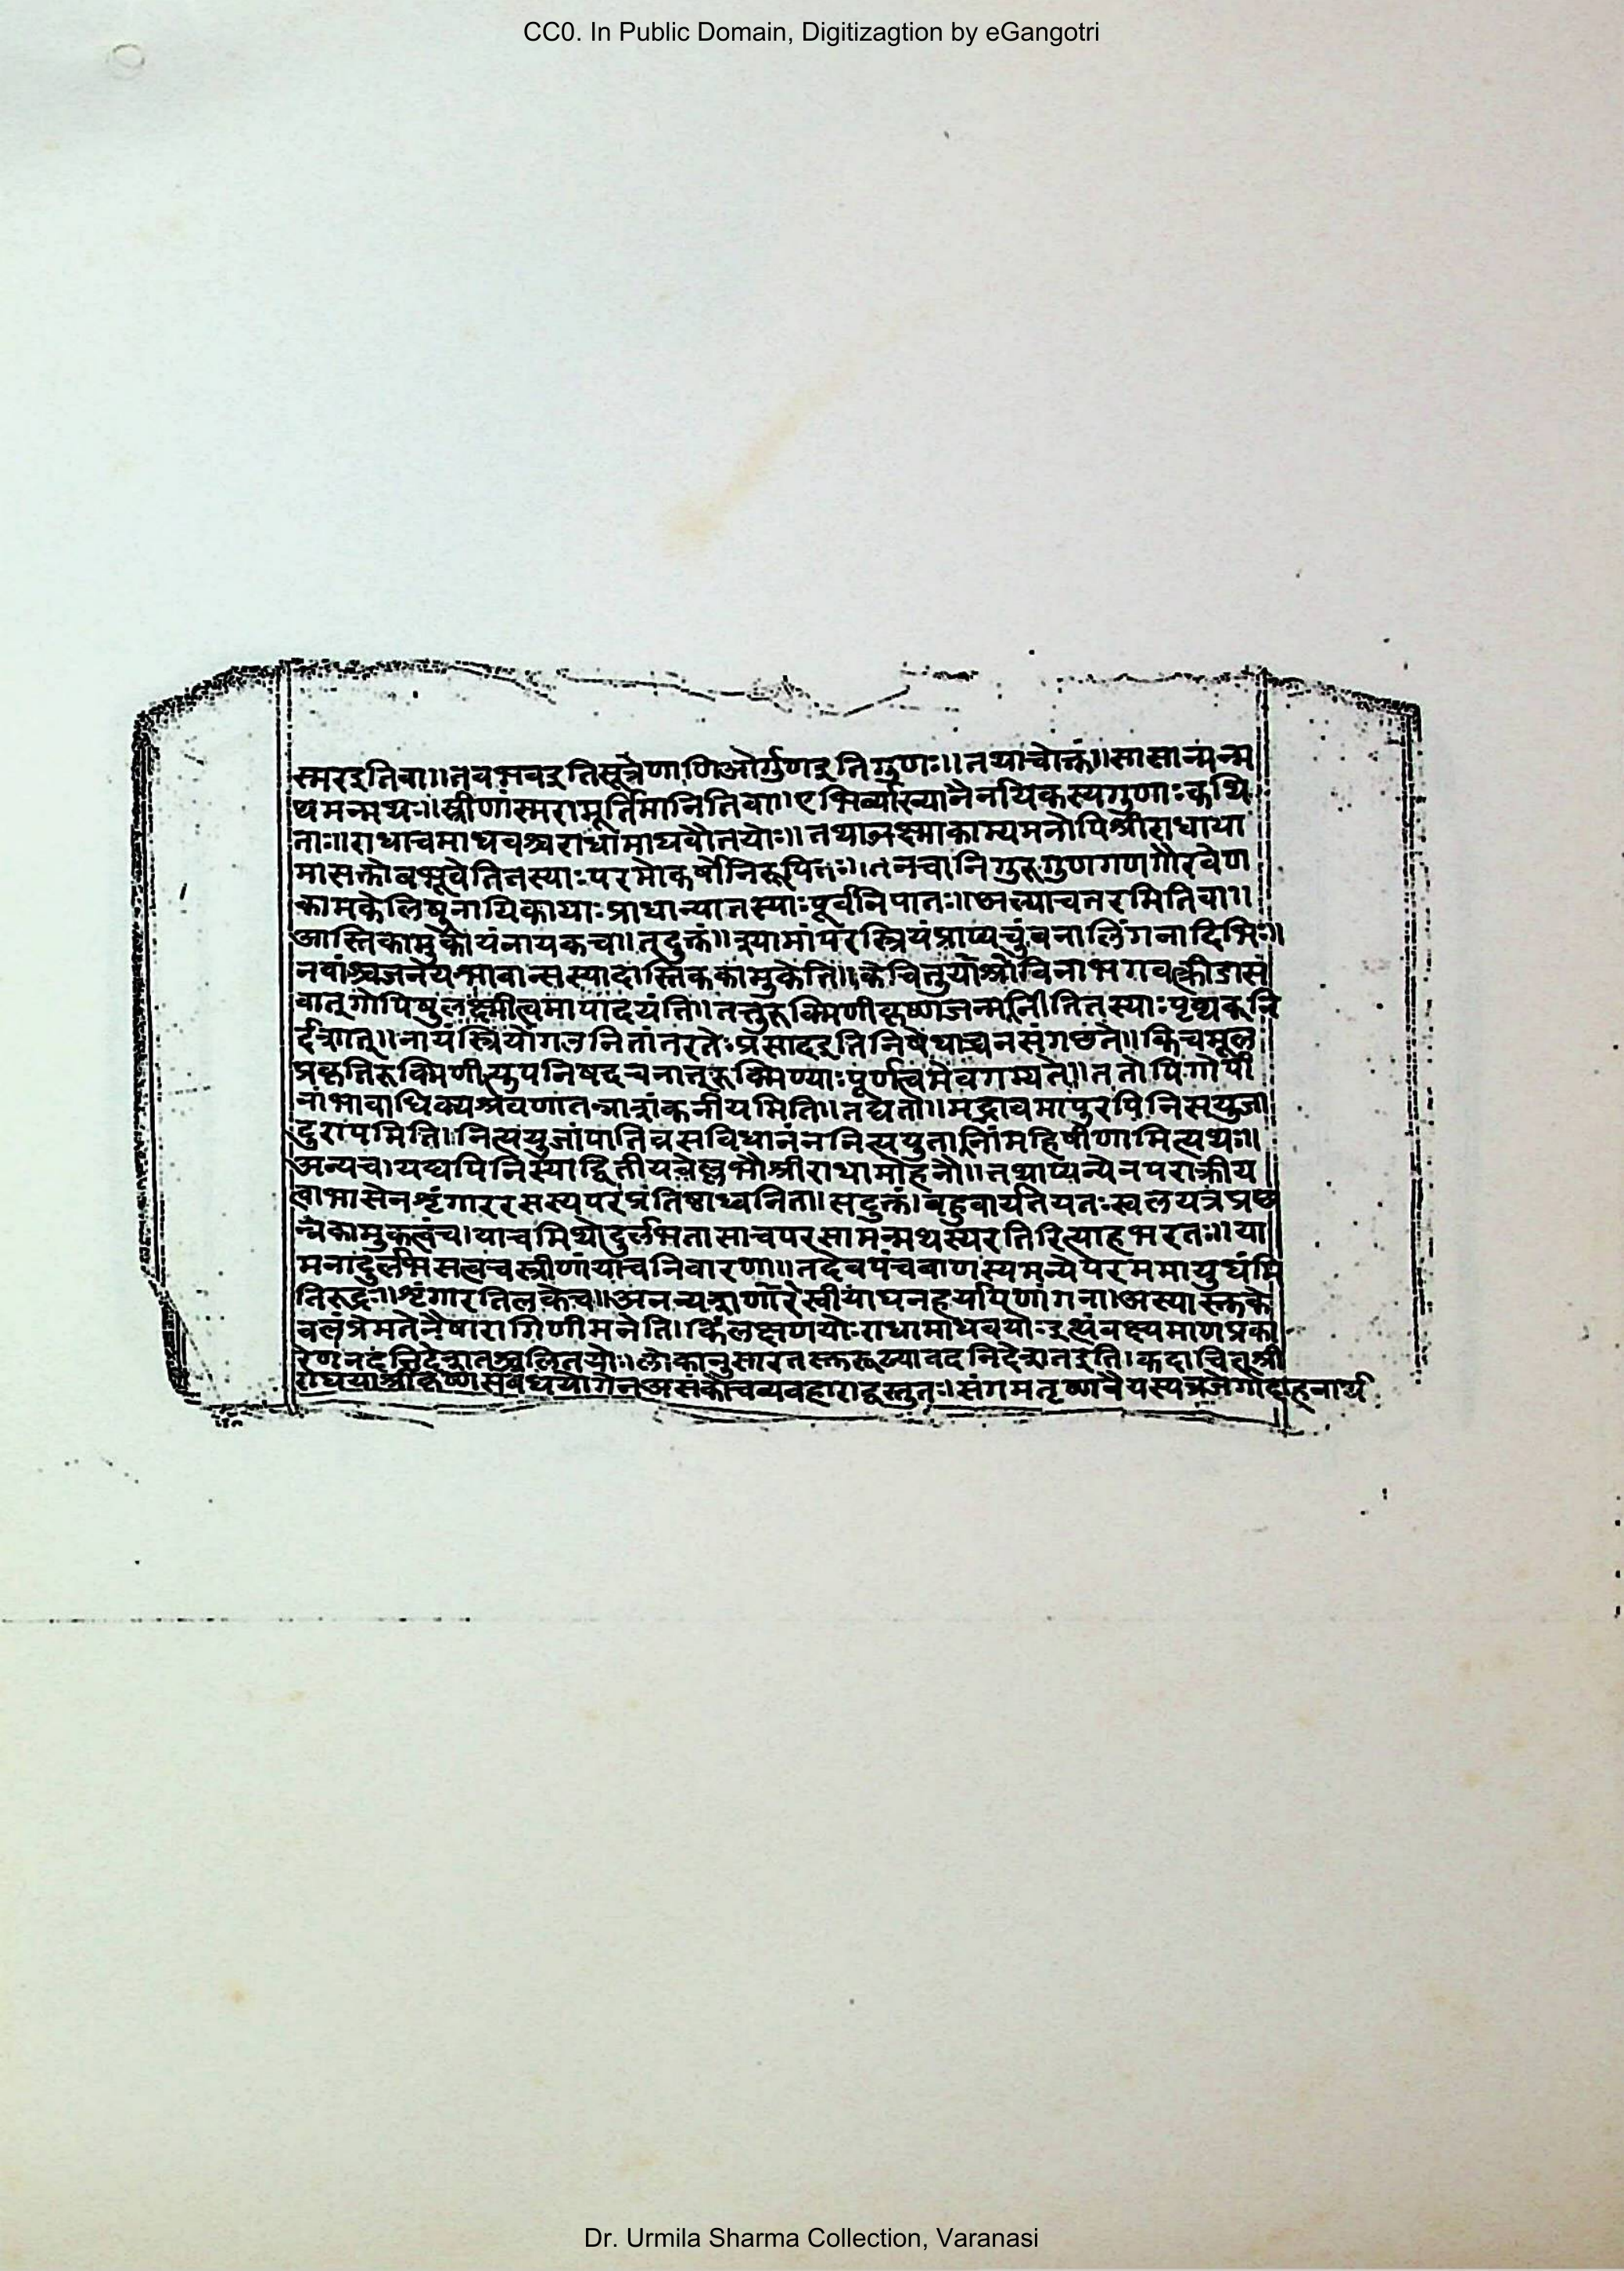 CC0. In Public Domain, Digitizagtion by eGangotri
स्मरइतिवा॥तेवभवइतिसूत्रेणाणिओर्गुणइतिगुणः॥तथाचोक्तं॥सासान्मन्म
थमन्मथः॥स्त्रीणांस्मरामूर्तिमानितिवा॥एभिर्व्याख्यानैनयिकस्यगुणाःकथि
ताः॥राधाचमाधवश्चराधामाधवौतयोः॥तथाआत्माकाम्यमनोपिश्रीराधाया
मासक्तोबभूवेतितस्याःपरमोत्कर्षोनिरूपितः॥तनचानिगुरुगुणगणगौरवेण
कामकेलिषुनायिकायाःप्राधान्यातस्याःपूर्वनिपातः॥अल्याचतरमितिवा॥
आस्तिकामुकोयंनायकच॥तदुक्तं॥इयामांपरस्त्रियंप्राप्यचुंबनालिंगनादिभिः॥
नवांश्चजनेयभावान्सस्यादास्तिककामुकेति॥केचित्तुयोश्रीविनाभगवत्क्रीडासं
वात्गोपिषुलक्ष्मीत्वमापादयंति॥तत्तुरुक्मिणीकृष्णजन्मनीतितस्याःपृथक्नि
र्देशात्॥नायंस्त्रियोगउनितांतरतेःप्रसादइतिनिषेधाच्चनसंगछते॥किंचमूल
प्रकृतिरुक्मिणीत्युपनिषद्वचनात्रुक्मिण्याःपूर्णत्वमेवगम्यते॥ततोपिगोपी
नांभावाधिक्यश्रवणातन्नाशंकनीयमिति॥नद्येतो॥मद्भावमापुरपिनित्सयुजा
दुरापमिति।नित्ययुजांपातिव्रसविधानेननित्ययुतानांमहिषीणामित्यथः॥
अन्यच।यद्यपिनिस्याद्वितीय श्रीराधामोहनौ॥तथाप्यन्येनपराक्रीय
त्वाभासेनशृंगाररसस्यपरंप्रतिष्ठाध्वनिता॥सदुक्तं।बहुवार्यतेयतःखलयत्रप्रछ
न्नकामुकत्वंच।याचमिथोदुर्लभतासाचपरसामन्मथस्यरतिरित्याहभरतः॥या
मनादुर्लभसत्वचस्त्रीणांयाचनिवारणा॥तदेवपंचबाणस्यमन्येपरममायुधंमि
तिरुद्रः॥शृंगारतिलकेच॥अनन्यशरणारेस्वीयाधनहर्यापणांगना।अस्यास्तके
वलंप्रेमतेनैषारागिणीमतेति।किंलक्षणयोःराधामाधवयोःइत्थंवक्ष्यमाणप्रका
रेणनंदनिदेशातश्चलितयोः।लोकानुसारत निदेशातइति।कदाचित्श्री
राधयाश्रीकृष्णसंबंधयोगेनअसंकोचव्यवहाराद्वस्तुतः।संगमतृष्णावै
Dr. Urmila Sharma Collection, Varanasi